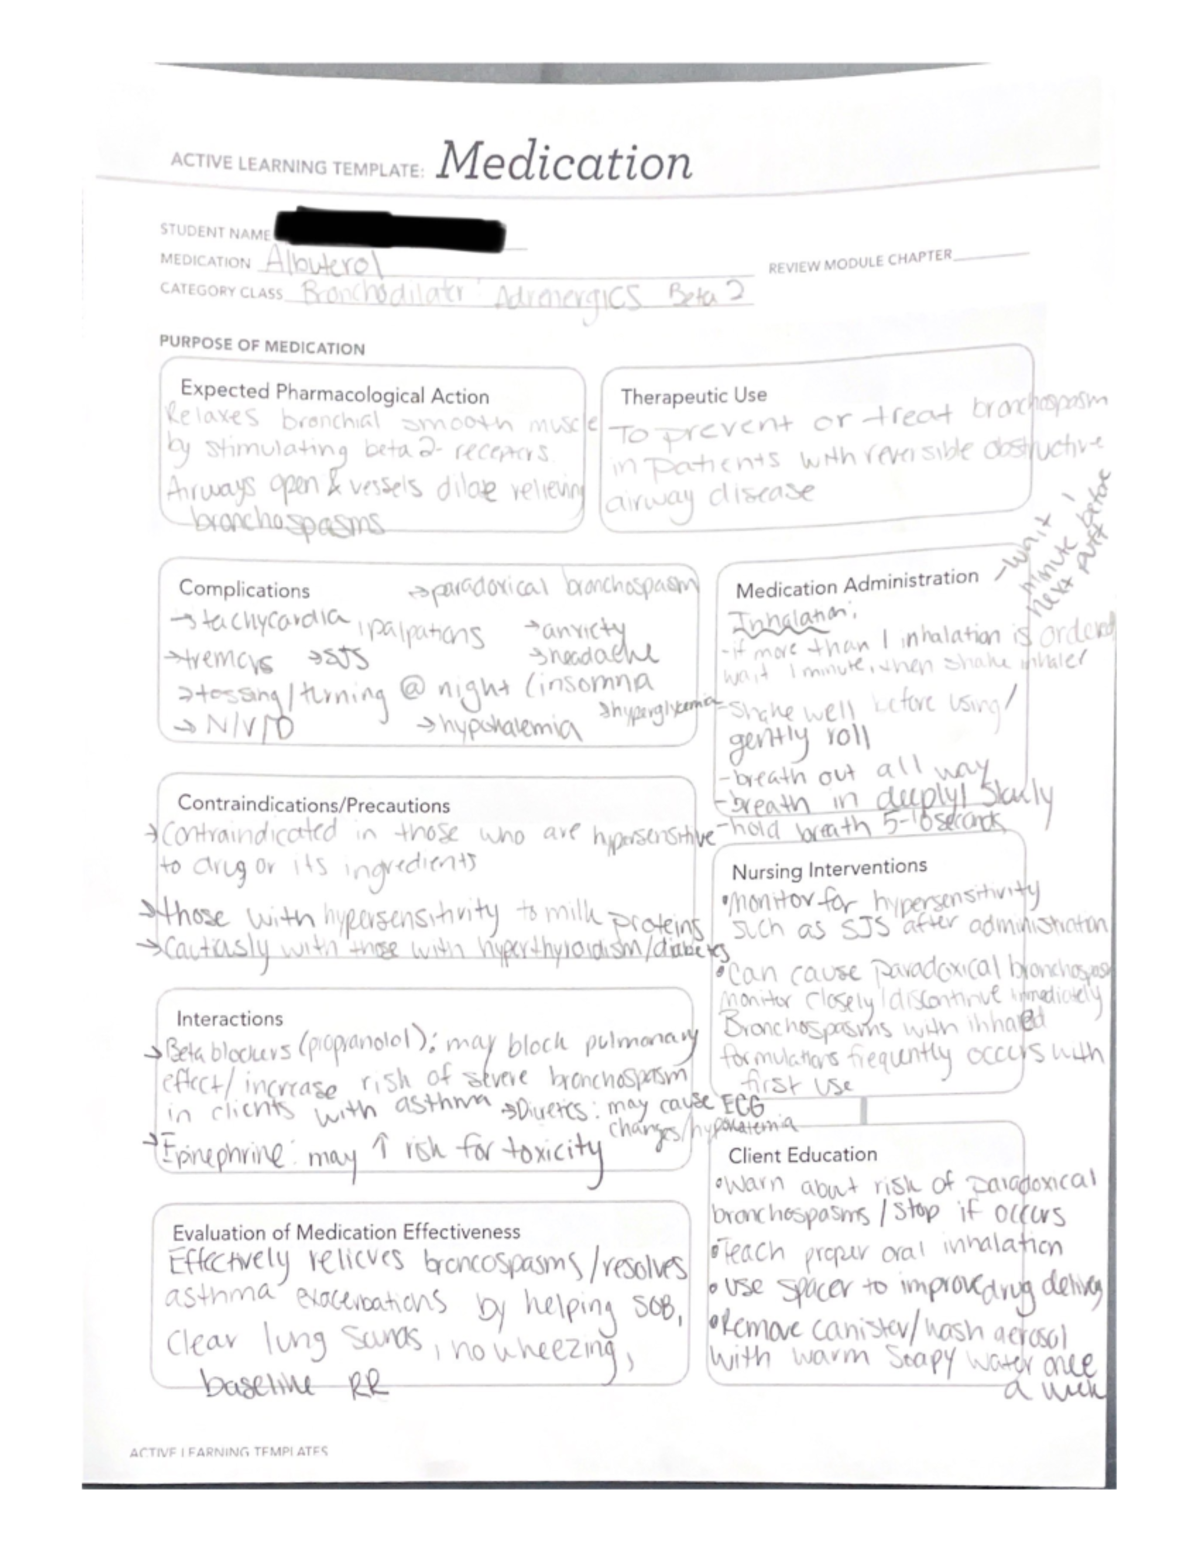 ACTIVE LEARNING TEMPLATE: Medication
STUDENT NAME
MEDICATION Albuterol
REVIEW MODULE CHAPTER
CATEGORY CLASS Bronchodilatr Adrenergics Beta 2
PURPOSE OF MEDICATION
Expected Pharmacological Action
Relaxes bronchial smooth muscle
by stimulating beta 2- receptors.
Airways open & vessels dilate relieving
bronchospasms
Therapeutic Use
To prevent or treat bronchospasm
in patients with reversible obstructive
airway disease
Complications
→paradoxical bronchospasm
→tachycardia, palpations →anxiety
→tremors →SJS →headache
→tossing/turning @ night (insomna
→N/V/D →hypokalemia →hyperglycemia
Medication Administration
-wait
1 minute before
next puff
Inhalation:
-if more than 1 inhalation is ordered
wait 1 minute, then shake inhaler
-Shake well before using/
gently roll
-breath out all way
-breath in deeply/ slowly
-hold breath 5-10 seconds
Contraindications/Precautions
→Contraindicated in those who are hypersensitive
to drug or its ingredients
→those with hypersensitivity to milk proteins
→Cautiously with those with hyperthyroidism/diabetes
Nursing Interventions
•Monitor for hypersensitivity
such as SJS after administration
•Can cause paradoxical bronchospasm
monitor closely/discontinue immediately
Bronchospasms with inhaled
formulations frequently occurs with
first use
Interactions
→Beta blockers (propranolol): may block pulmonary
effect/ increase risk of severe bronchospasm
in clients with asthma →Diuretics: may cause ECG
changes/hypokalemia
→Epinephrine: may ↑ risk for toxicity
Client Education
•Warn abut risk of paradoxical
bronchospasms /stop if occurs
•Teach proper oral inhalation
•use spacer to improve drug delivery
•Remove canister/wash aerosol
with warm soapy water once
a week
Evaluation of Medication Effectiveness
Effectively relieves broncospasms/resolves
asthma exacerbations by helping SOB,
clear lung sounds, no wheezing,
baseline RR
ACTIVE LEARNING TEMPLATES